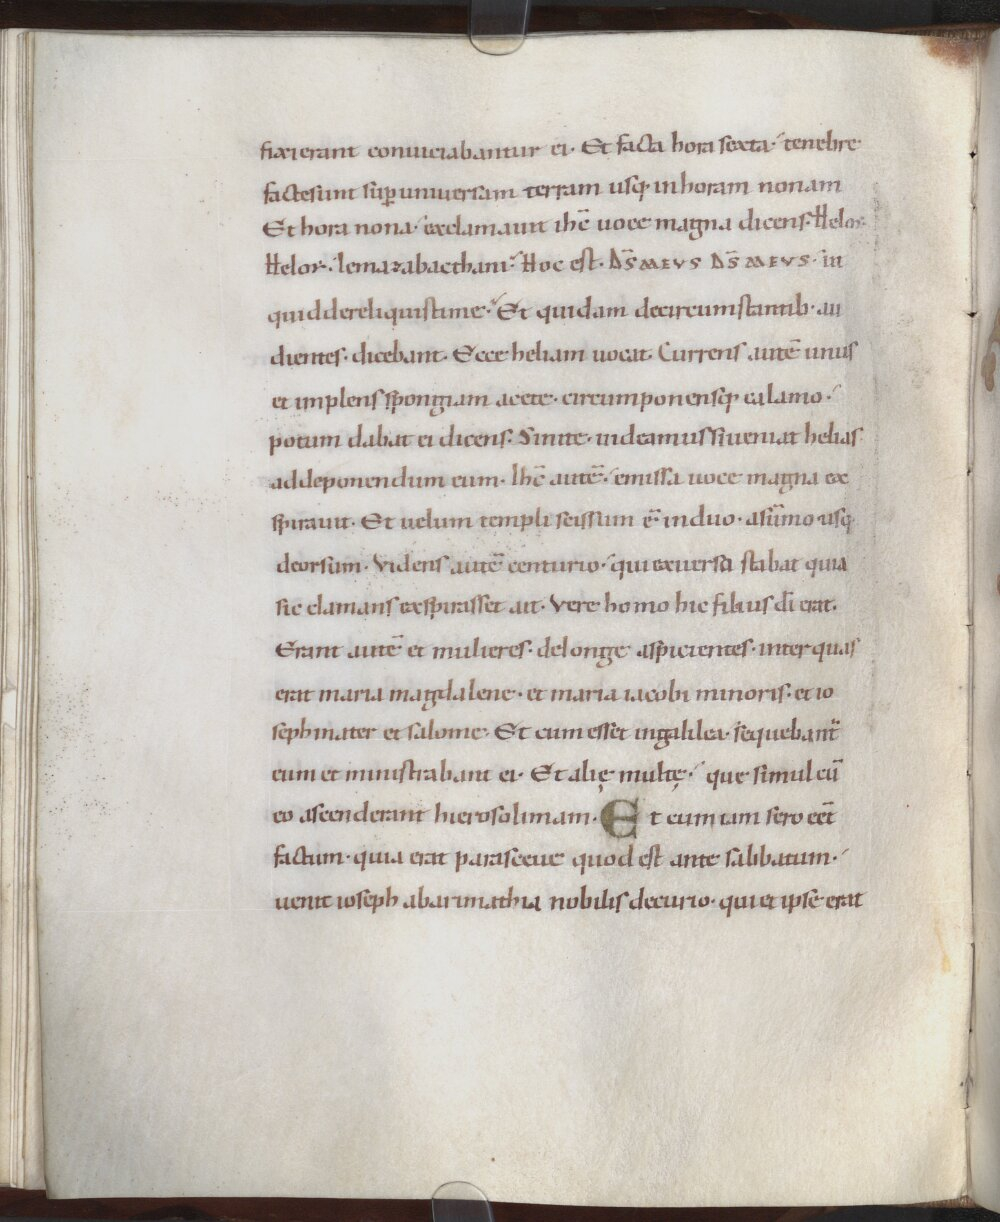 fixierant conuiciabantur ei· Et facta hora sexta· tenebre
factesunt sup̲ uniuersam terram usq; inhoram nonam
Et hora nona· exclamauit ihc̄ uoce magna dicens· Heloi·
Heloi· lemazabacthani· Hoc est· D̄S MEVS D̄S MEVS· ut
quiddereliquistime· Et quidam decircumstantib· au
dientes· dicebant· Ecce heliam uocat· Currens autē unus
et implens spongiam aceto· circumponensq; calamo·
potum dabat ei dicens· Sinite· uideamus siueniat helias
addeponendum eum· Ihc̄ autē· emissa uoce magna ex
spirauit· Et uelum templi scissum ē induo· asūmo usq;
deorsum· Videns autē centurio· qui exuersa stabat quia
sic clamans exspirasset ait· Vere homo hic filius dī erat·
Erant autē et mulieres· delonge aspicientes· inter quas
erat maria magdalene· et maria iacobi minoris· et io
seph mater et salome· Et cum esset ingalilea· sequebant̄
eum et ministrabant ei· Et alię multę· que simul cū
eo ascenderant hierosolimam· Et cum iam sero eēt
factum· quia erat parasceue quod est ante sabbatum·
uenit ioseph abarimathia nobilis decurio· qui et ipse erat